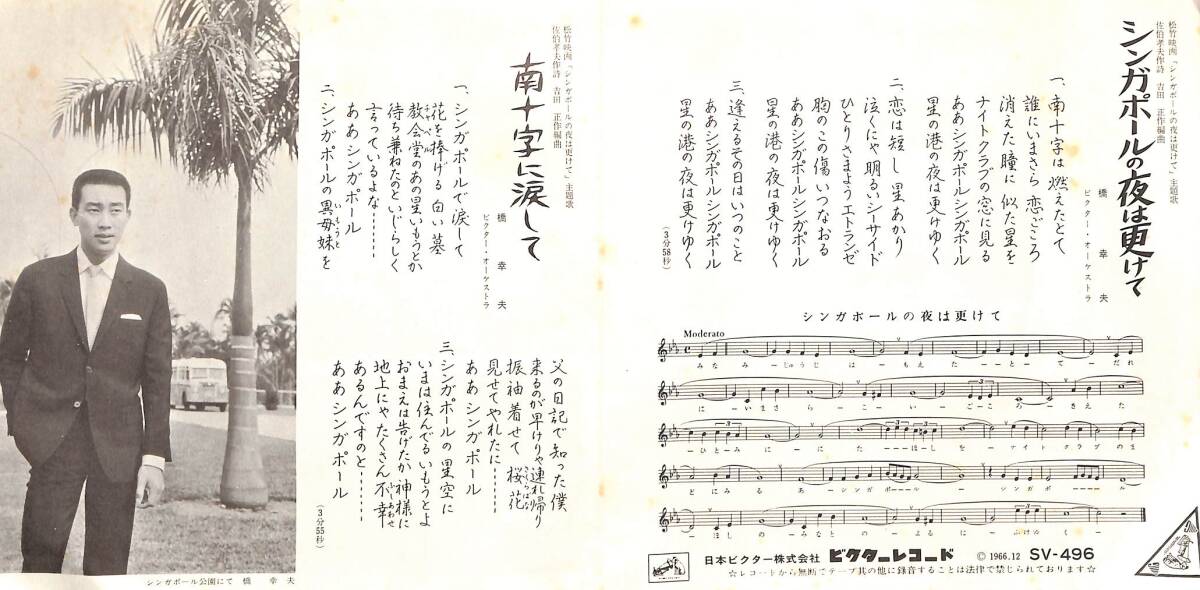 松竹映画「シンガポールの夜は更けて」主題歌
佐伯孝夫作詩 吉田 正作編曲
シンガポールの夜は更けて
橋 幸夫
ビクター・オーケストラ
一、南十字は 燃えたとて
誰にいまさら 恋ごころ
消えた瞳に 似た星を
ナイトクラブの窓に見る
ああシンガポールシンガポール
星の港の夜は更けゆく
二、恋は短し 星あかり
泣くにゃ明るいシーサイド
ひとりさまようエトランゼ
胸のこの傷 いつなおる
ああシンガポールシンガポール
星の港の夜は更けゆく
三、逢えるその日は いつのこと
ああシンガポールシンガポール
星の港の夜は更けゆく
(3分58秒)
シンガポールの夜は更けて
Moderato
みなみーじゅうじ はーもえたーーとーてーだれ
にーいまさらーこーいーごーころーきえた
ーひとみーにーにたーーほしをーナイトクラブのま
どにみるあーシンガポーールーシンガポーーール
ーほしのーみなとのーよるはーふけゆく
日本ビクター株式会社 ビクターレコード © 1966.12 SV-496
☆レコードから無断でテープ其の他に録音することは法律で禁じられております☆
松竹映画「シンガポールの夜は更けて」主題歌
佐伯孝夫作詩 吉田 正作編曲
南十字に涙して
橋 幸夫
ビクター・オーケストラ
一、シンガポールで 涙して
花を捧げる 白い墓
教会堂のあの星いもうとか
チャペル
待ち兼ねたのと いじらしく
言っているよな……
ああ シンガポール
二、シンガポールの異母妹を
いもうと
父の日記で 知った僕
来るのが早けりゃ連れ帰り
振袖着せて 桜花
さくらばな
見せてやれたに……
ああ シンガポール
三、シンガポールの 星空に
いまは住んでる いもうとよ
おまえは告げたか 神様に
地上にゃたくさん 不幸
ふしあわせ
あるんですのと……
ああ シンガポール
(3分55秒)
シンガポール公園にて 橋 幸夫